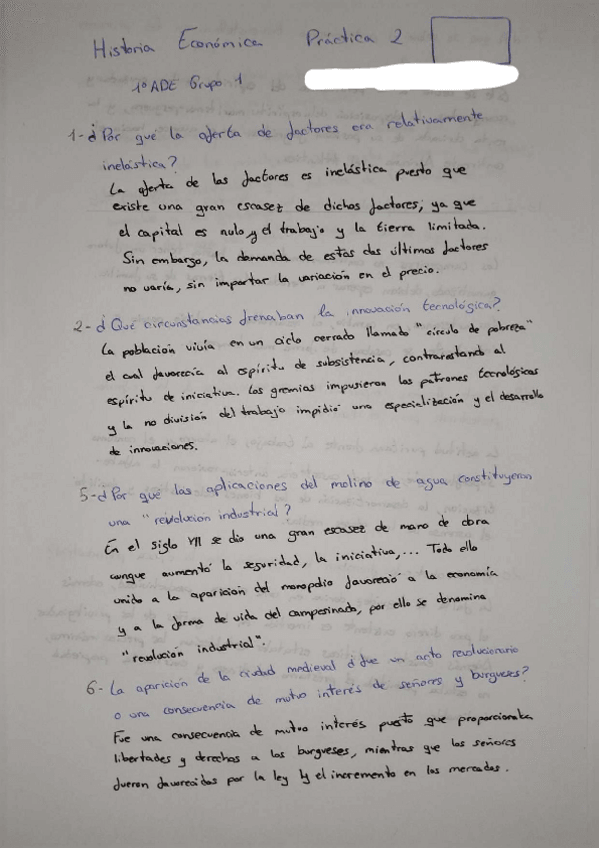 Historia Económica Práctica 2
1º ADE Grupo 1
1- ¿Por qué la oferta de factores era relativamente
inelástica?
La oferta de los factores es inelástica puesto que
existe una gran escasez de dichos factores, ya que
el capital es nulo y el trabajo y la tierra limitada.
Sin embargo, la demanda de estos dos últimos factores
no varía, sin importar la variación en el precio.
2- ¿Qué circunstancias frenaban la innovación tecnológica?
La población vivía en un ciclo cerrado llamado "círculo de pobreza"
el cual favorecía al espíritu de subsistencia, contrarestando al
espíritu de iniciativa. Los gremios impusieron los patrones tecnológicos
y la no división del trabajo impidió una especialización y el desarrollo
de innovaciones.
5- ¿Por qué las aplicaciones del molino de agua constituyeron
una "revolución industrial"?
En el siglo VII se dio una gran escasez de mano de obra
aunque aumentó la seguridad, la iniciativa,... Todo ello
unido a la aparición del monopolio favoreció a la economía
y a la forma de vida del campesinado, por ello se denomina
"revolución industrial".
6- La aparición de la ciudad medieval ¿fue un acto revolucionario
o una consecuencia de mutuo interés de señores y burgueses?
Fue una consecuencia de mutuo interés puesto que proporcionaba
libertades y derechos a los burgueses, mientras que los señores
fueron favorecidos por la ley y el incremento en los mercados.